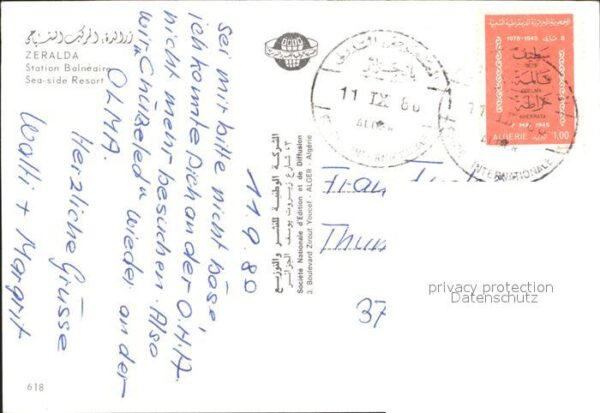 زرالدة، المركب السياحي
ZERALDA
Station Balnéaire
Sea-side Resort
11.9.80
sei mir bitte nicht böse,
ich konnte Dich an der O.H.A.
nicht mehr besuchen. Also
wir wieder an der
OLMA.
Herzliche Grüsse
Walti + Margrit
618
الشركة الوطنية للنشر والتوزيع
٣، شارع زيروت يوسف الجزائر
Société Nationale d'Edition et de Diffusion
3, Boulevard Zirout Youcef - ALGER - Algérie
11 IX 80
ALGER
INTERNATIONALE
1975-1945
ALGERIE 1,00
37
privacy protection
Datenschutz